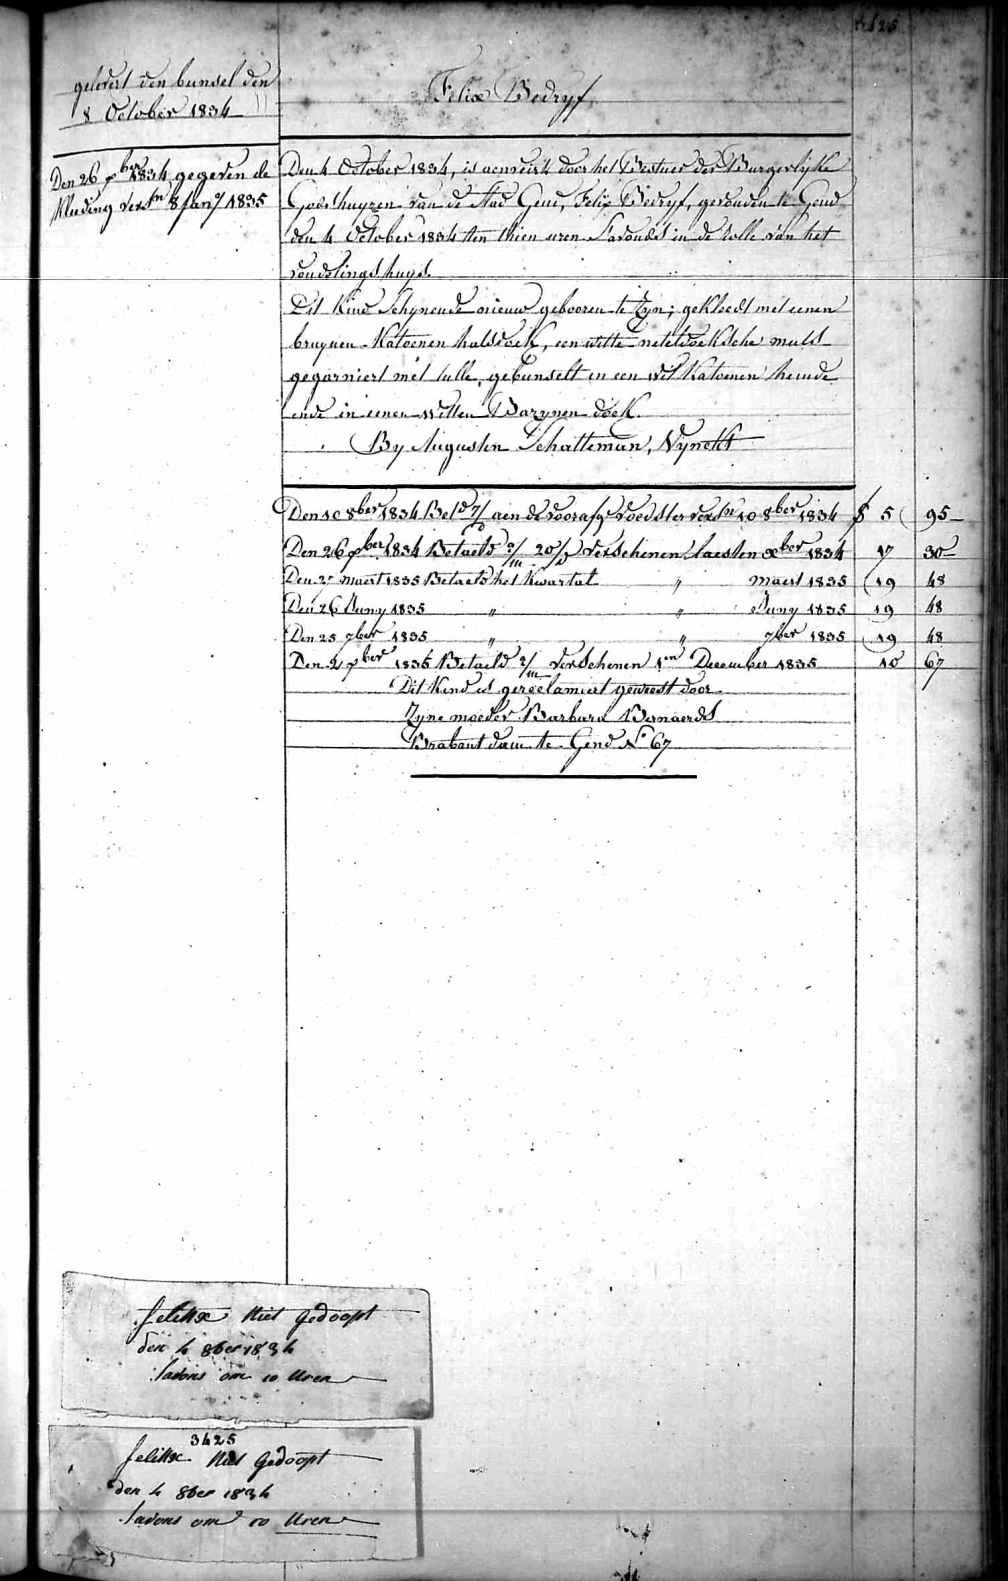 gelevert den bunsel den
8 October 1834
Den 26 xber 1834 gegeven de
kleeding versn 8 Jany 1835
Felix Bedryf
Den 4 October 1834, is aenveirt door het Bestuer der Burgerlyke
Godshuyzen van de Stad Gend, Felix Bedryf, gevonden te Gend
den 4 October 1834 ten thien uren S'avonds in de rolle van het
vondelingshuys
Dit Kind Schynende nieuw gebooren te Zyn; gekleedt met eenen
bruynen Katoenen halsdoek, een witte neteldoeksche muts
gegarniert met tulle, gebunselt in een wit Katoenen hemde
ende in eenen witten Bazynen doek.
By Augusten Schatteman, Nynckt
Den 10 8ber 1834 Beld 7/ aen de voorafg voedster versn 10 8ber 1834 $ 5 95
Den 26 xber 1834 Betaeld 2/m 20/d Verschenen laesten xber 1834 17 30
Den 2 maert 1835 Betaeld het Kwartal " maert 1835 19 48
Den 26 Juny 1835 " " Juny 1835 19 48
Den 25 7ber 1835 " " 7ber 1835 19 48
Den 21 xber 1835 Betaeld 2/m Verschenen 1en December 1835 10 67
Dit Kind is gereclameert geweest door
Zyne moeder Barbara Bernaerds
Brabant dam te Gend No 67
felickx Niet gedoopt
den 4 8ber 1834
savons om 10 Uren
3425
felickx Niet Gedoopt
den 4 8ber 1834
savons om 10 Uren